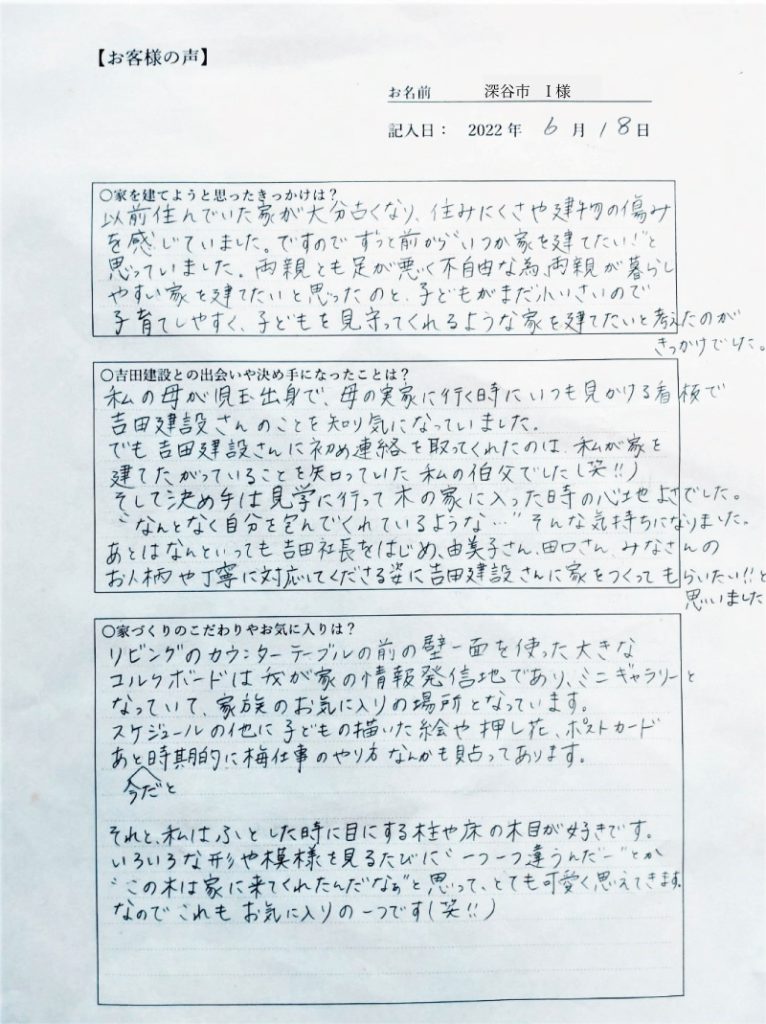 【お客様の声】
お名前 深谷市 I様
記入日： 2022年 6月 18日
○家を建てようと思ったきっかけは？
以前住んでいた家が大分古くなり、住みにくさや建物の傷み
を感じていました。ですので ずっと前から“いつか家を建てたい!”と
思っていました。両親とも足が悪く不自由な為、両親が暮らし
やすい家を建てたいと思ったのと、子どもがまだ小いさいので
子育てしやすく、子どもを見守ってくれるような家を建てたいと考えたのが
きっかけでした。
○吉田建設との出会いや決め手になったことは？
私の母が児玉出身で、母の実家に行く時にいつも見かける看板で
吉田建設さんのことを知り気になっていました。
でも吉田建設さんに初め連絡を取ってくれたのは、私が家を
建てたがっていることを知っていた 私の伯父でした(笑!!)
そして決め手は見学に行って木の家に入った時の心地よさでした。
“なんとなく自分を包んでくれているような…”そんな気持ちになりました。
あとはなんといっても吉田社長をはじめ、由美子さん、田口さん、みなさんの
お人柄や丁寧に対応してくださる姿に吉田建設さんに家をつくってもらいたい!!と
思いました
○家づくりのこだわりやお気に入りは？
リビングのカウンターテーブルの前の壁一面を使った大きな
コルクボードは我が家の情報発信地であり、ミニギャラリーと
なっていて、家族のお気に入りの場所となっています。
スケジュールの他に子どもの描いた絵や押し花、ポストカード
あと時期的に梅仕事のやり方なんかも貼ってあります。
今だと
それと、私はふとした時に目にする柱や床の木目が好きです。
いろいろな形や模様を見るたびに“一つ一つ違うんだー”とか
“この木は家に来てくれたんだなぁ”と思って、とても可愛く思えてきます。
なのでこれもお気に入りの一つです(笑!!)